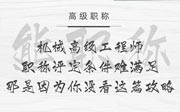 高级职称
熊职称
机械高级工程师
职称评定条件难满足
那是因为你没看这篇攻略